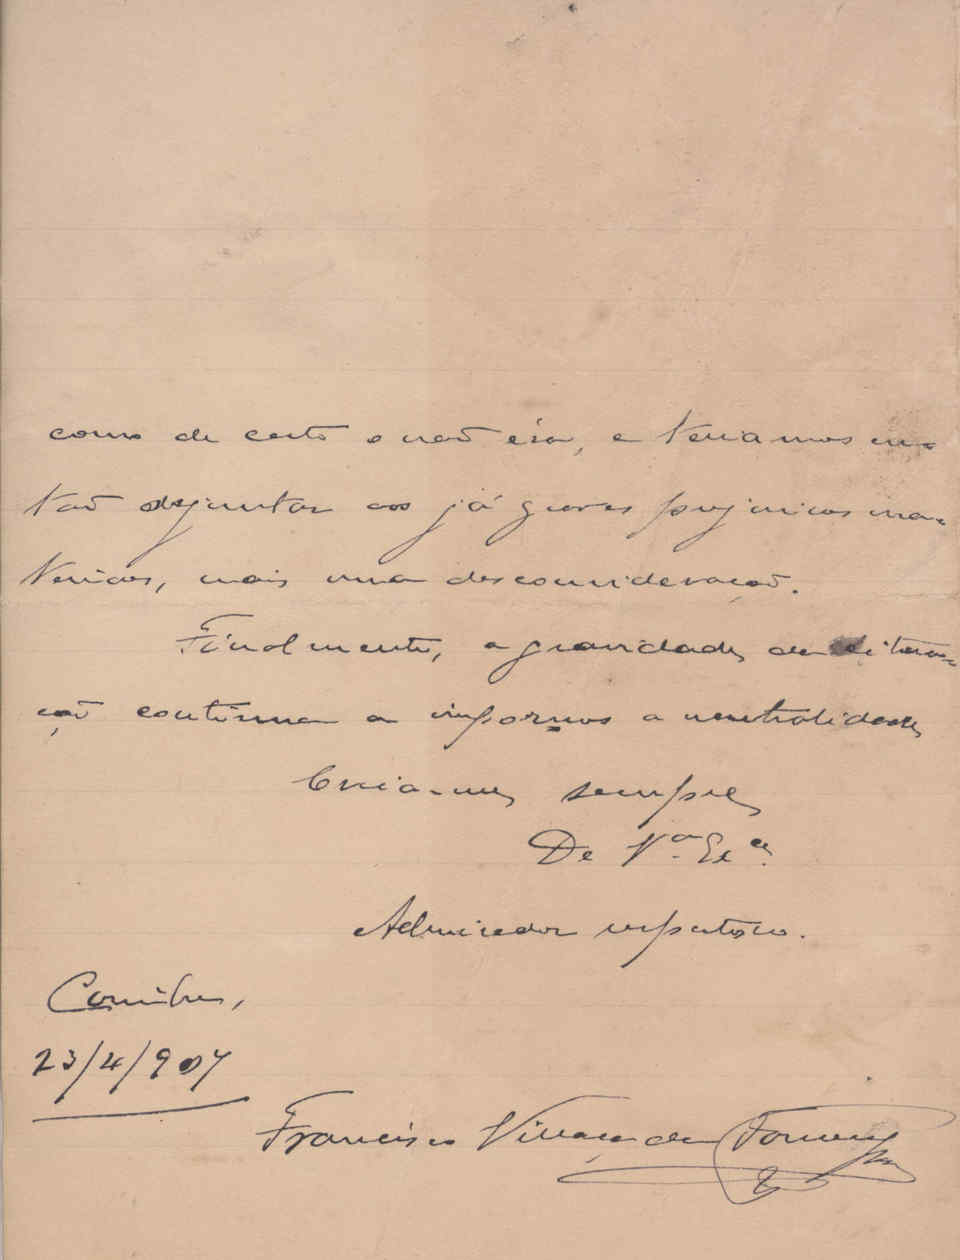 como de certo o não éra, e teriamos en-
tão de juntar aos já graves prejuizos ma-
teriaes, mais uma desconsideração.
Finalmente, a gravidade da situa-
ção continua a impôr-nos a neutralidade
Creia-me sempre
De V.ª Ex.ª
Admirador respeitoso.
Coimbra,
23/4/907
Francisco Villaça da Fonseca